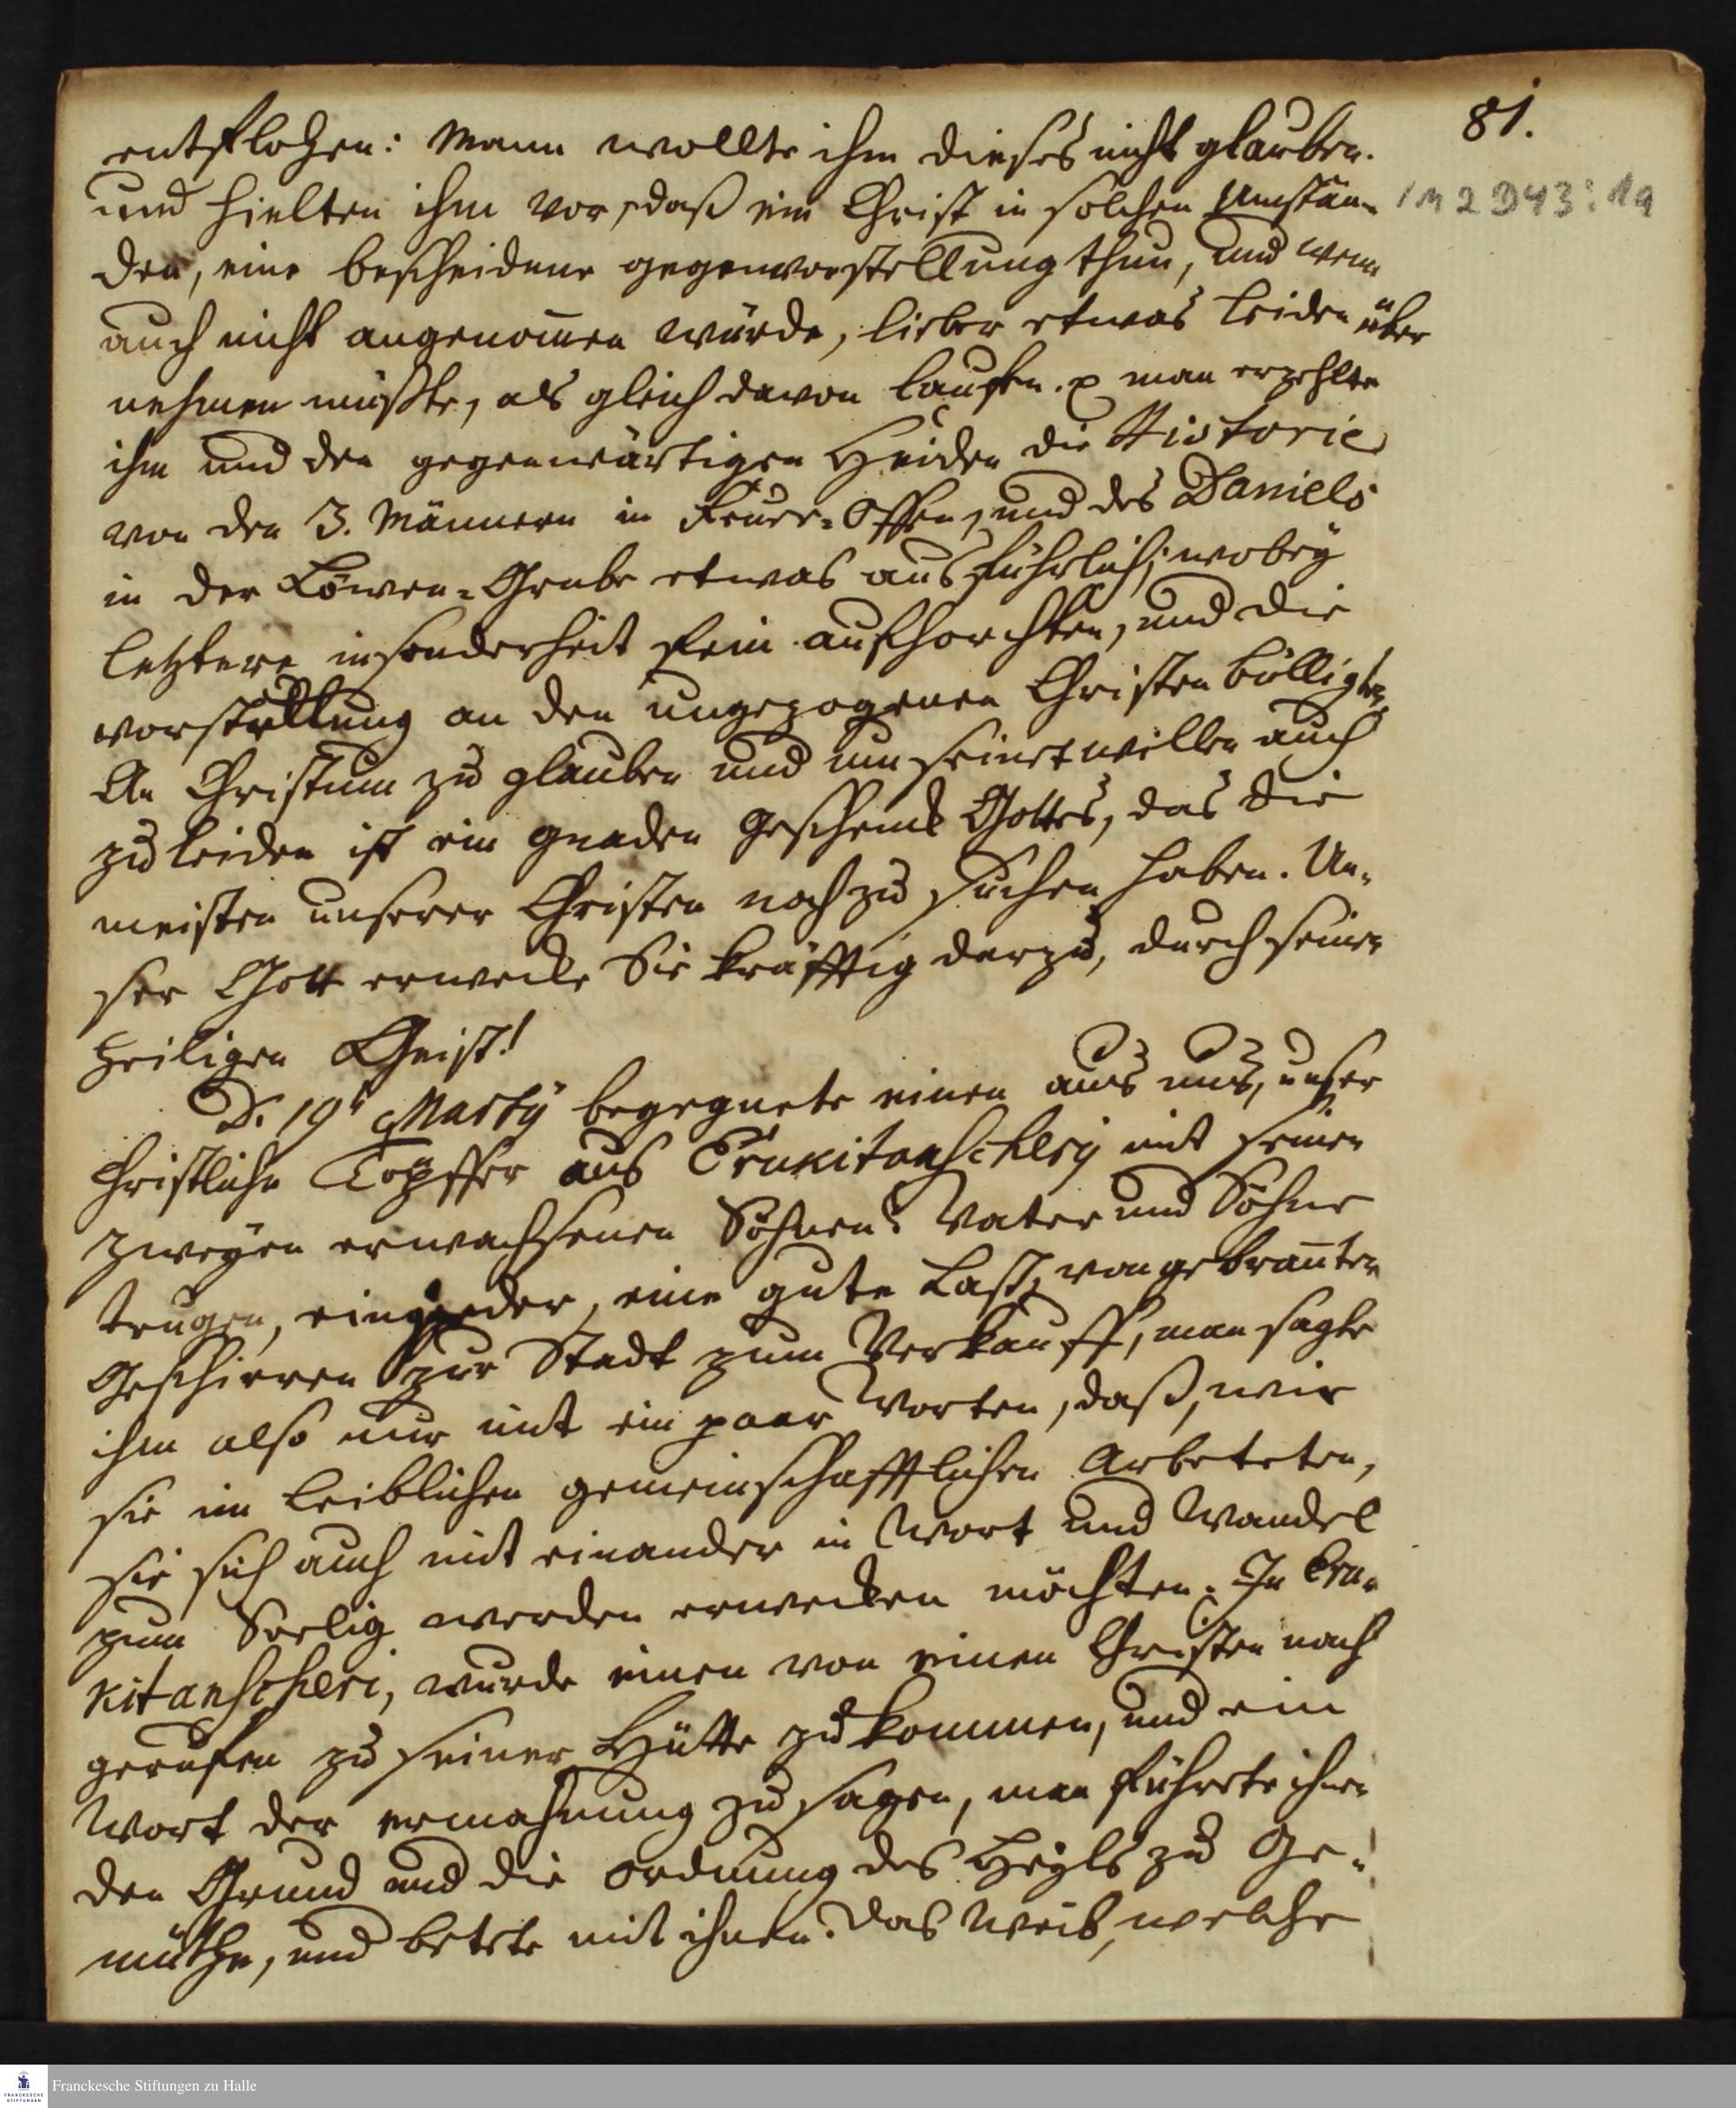 81.
entflohen: Mann wollte ihm dieses nicht glauben.
1M 2 D43: 19
und hielten ihm vor, daß ein Christ in solchen Umstän-
den, eine bescheidene gegenvorstellung thun, und wenn
auch nicht angenom̄en würde, lieber etwas leiden über
nehmen müßte, als gleich davon lauffen. man erzehlte
ihm und den gegenwärtigen Heiden die Historie
von den 3. Männern in Feuer-Offen, und des Daniels
in der Löwen-Grube etwas ausführlich; wobey
letztere insonderheit fein aufhorchten, und die
vorstellung an den ungezogenen Christen billigten,
An Christum zu glauben und um seinetwillen auch
zu leiden ist ein gnaden Geschenck Gottes, das die
meisten unserer Christen noch zu suchen haben. Un-
ser Gott erwecke Sie kräfftig darzu, durch seinen
heiligen Geist!
D. 19t Martÿ begegnete einen aus uns, unser
Christliche Töpffer aus Erukitanscheri mit seinen
zweyen erwachsenen Söhnen: Vater und Söhne
trugen, ein jeder, eine gute Last, von gebran̄ten
Geschirren zur Stadt zum Verkauff, man sagte
ihm also nur mit ein paar Worten, daß, wie
sie im leiblichen gemeinschafftlichen Arbeteten,
sie sich auch mit einander in Wort und Wandel
zum Seelig werden erwecken möchten. In Eru-
kitanscheri, wurde einen von einen Christen nach
geruffen zu seiner Hütte zu kommen, und ein
Wort der ermahnung zu sagen, man führete ihnen
den Grund und die ordnung des Heyls zu Ge-
müthe, und betete mit ihnen. Das Weib, welche
Franckesche Stiftungen zu Halle
FRANCKESCHE
STIFTUNGEN